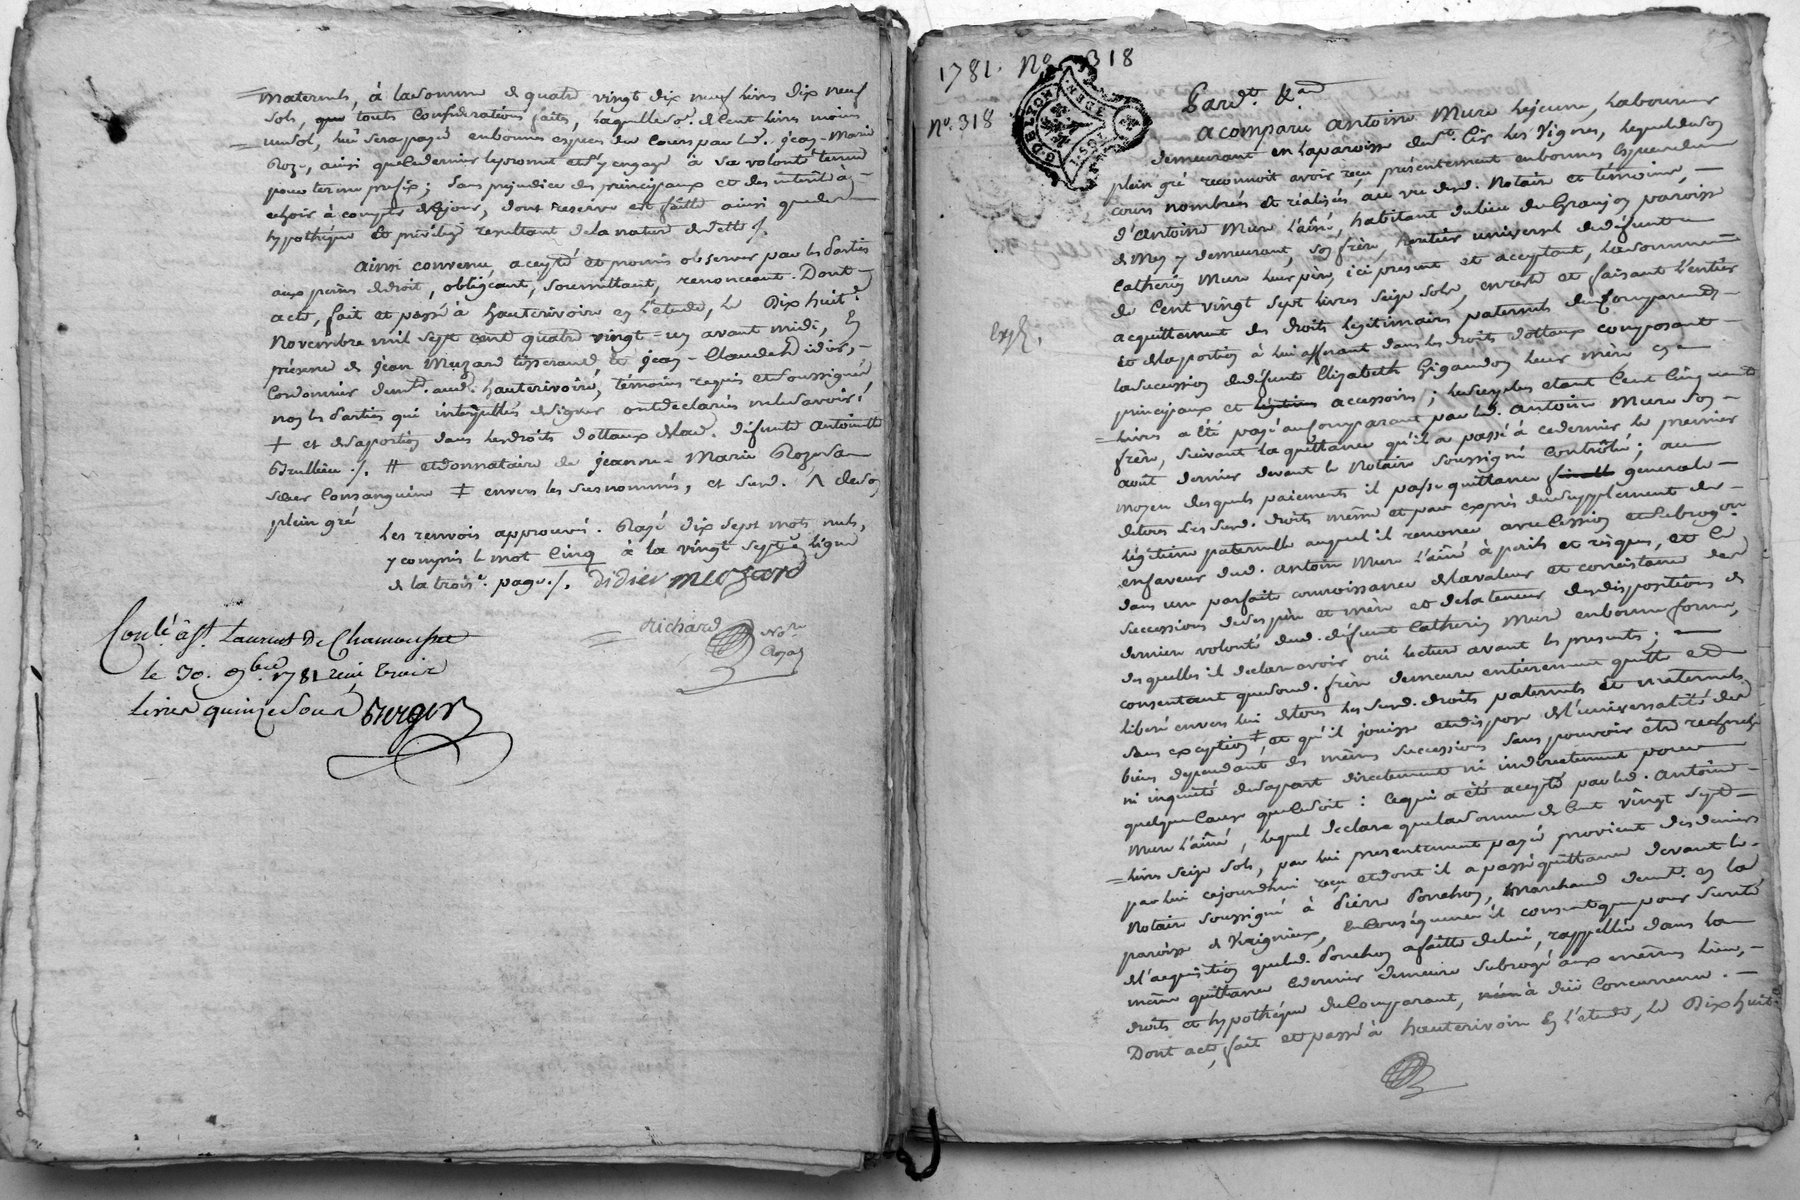 maternels, à la somme de quatre vingt dix neuf livres dix neuf
sols, que touts considerations faites, laquelle so.e de Cent livres moins
un sol, lui sera payé en bonnes especes du Cours par led. jean-Marie
Roze, ainsi que ce dernier le promet et s'y engage à sa volonté tenue
pour terme prefix; sans prejudice des principaux et des interets a
echoir à compter de ce jour, dont reserve est faitte ainsi que de
hypothéque et privilege resultant de la nature de dette ./.
ainsi convenu, accepté et promis observer par les Parties
aux peines de droit, obligeant, soumettant, renonceant. Dont
acte, fait et passé à hauterivoire en l'etude, le Dix huit.e
Novembre mil sept cent quatre vingt=un avant midi, En
présence de jean Muzard tisserand, et jean-Claude Didier,
Cordonnier dem.t aud. hauterivoire, témoins requis et soussignés
non les Parties qui interpellées de signer ont declarées ne le savoir;
+ et de sa portion dans les droits dottaux de lad. défunte Antoinette
Brullieu ./. # et donnataire de jeanne-Marie Roze sa
sœur Consanguine ‡ envers les susnommés, et sud. Λ de son
plein gré
Les renvois approuvés. Rayé dix sept mots nuls,
y compris le mot Cinq à la vingt sept.e ligne
de la trois.e page ./. didier muzard
Richard No.re Royal
Contr.lé à St. Laurent De Chamousset
le 30. 9.bre 1781 reçu trois
livres quinze sous Berger
1781. No. 318
No. 318
G. DE LYON
Pard.t &.a
a comparu Antoine Mure le jeune, Laboureur
demeurant en la paroisse de St. Cir les Vignes, lequel de son
plein gré reconnoit avoir reçu présentement en bonnes especes du
cours nombrées et réalisées au vu dud. Notaire et témoins,
d'Antoine Mure l'aîné, habitant du lieu du Granjon paroisse
de Mey y demeurant, son frère, heritier universel de défunt
Catherin Mure leur père, ici présent et acceptant, la somme
de Cent vingt sept livres seize sols, en reste et faisant l'entier
acquittement des droits legitimaires paternels du Comparant
et de la portion à lui afferant dans les droits dottaux composant
la succession de défunte Elizabeth Gigaudon leur mère en
principaux et accessoires; le surplus etant Cent Cinquante
livres a été payé au Comparant par led. Antoine Mure son
frère, suivant la quittance qu'il a passé à ce dernier le premier
août dernier devant le Notaire soussigné Contrôlée; au
moyen desquels paiements il passe quittance generale
de tous ses susd. droits même et par exprès du supplement de
légitime paternelle auquel il renonce avec Cession et subrogon.
en faveur dud. Antoine Mure l'aîné à perils et risques, et Ce
dans une parfaite connoissance de la valeur et consistance des
successions de ses père et mère et de la teneur des dispositions de
derniere volonté dud. défunt Catherin Mure en bonne forme,
desquelles il declare avoir oui lecture avant les presentes;
consentant que sond. frère demeure entierement quitte et
liberé envers lui de tous les susd. droits paternels et maternels
sans exception ‡, et qu'il jouisse et dispose de l'universalité des
biens dependant des mêmes successions sans pouvoir être recherché
ni inquieté de sa part directement ni indirectement pour
quelque Cause que Ce soit: Ce qui a été accepté par led. Antoine
Mure l'aîné, lequel declare que la somme de Cent vingt sept
livres seize sols, par lui presentement payée provient des deniers
par lui cejourd'hui reçu et dont il a passé quittance devant le
Notaire soussigné à Pierre Ponchon, Marchand dem.t en la
paroisse de Virigneux, en Conséquence il consent que pour sureté
de l'acquisition que led. Ponchon a faitte de lui, rappellée dans la
même quittance ce dernier demeure subrogé aux mêmes lieu,
droits et hypothéque du Comparant, à dûe Concurrence.
Dont acte, fait et passé à hauterivoire En l'etude, le Dix huit.e